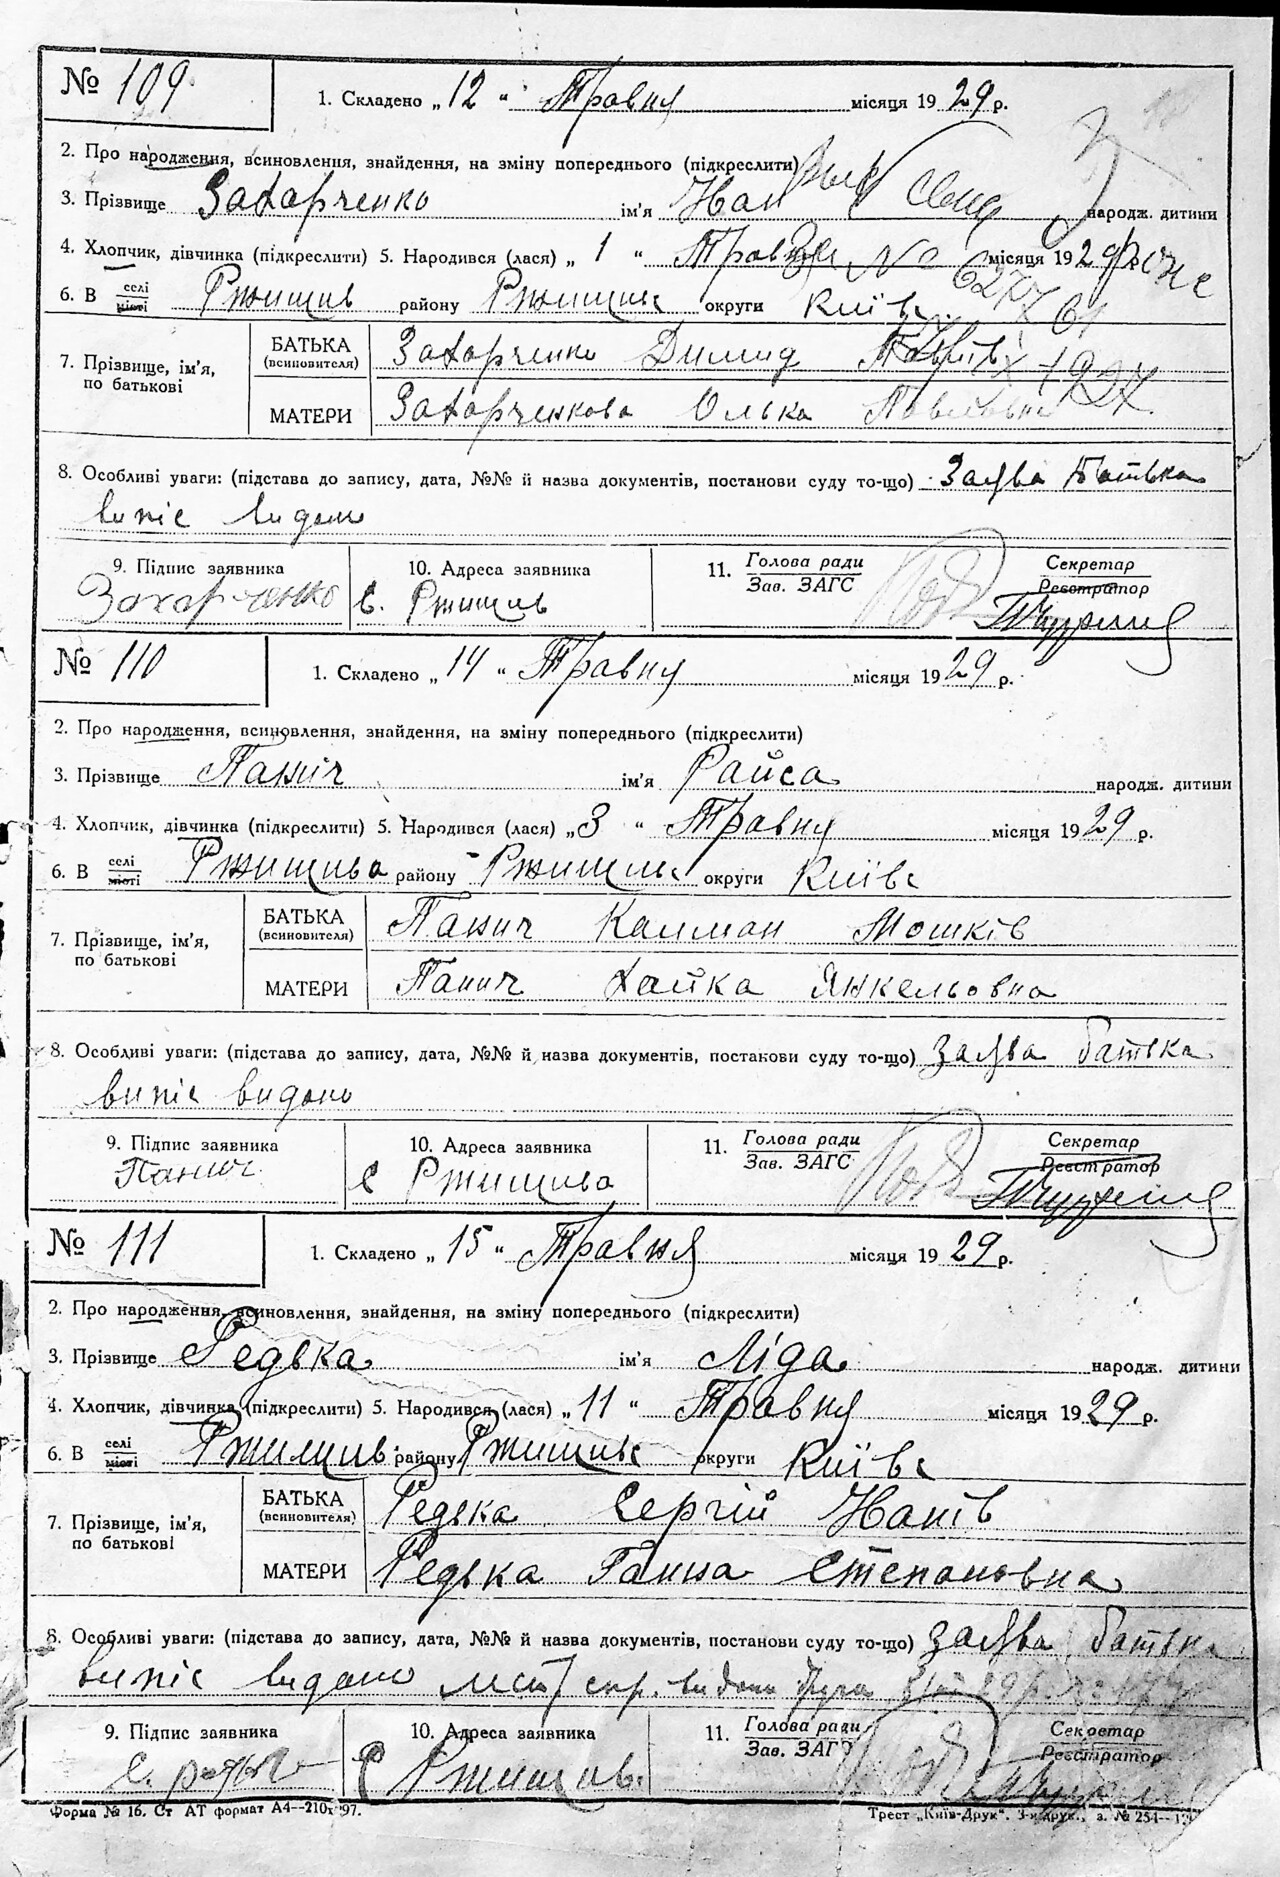 № 109. 1. Складено „12“ Травня місяця 1929 р.
2. Про народження, всиновлення, знайдення, на зміну попереднього (підкреслити)
3. Прізвище Захарченко ім'я Иван народж. дитини
4. Хлопчик, дівчинка (підкреслити) 5. Народився (лася) „1“ Травня місяця 1929
6. В селі / місті Ржищів району Ржищівс округи Київс
7. Прізвище, ім'я, по батькові
БАТЬКА (всиновителя) Захарченко Димид Павлів
МАТЕРИ Захарченкова Олька Павловна
8. Особливі уваги: (підстава до запису, дата, №№ й назва документів, постанови суду то-що) Заява батька
випіс видано
9. Підпис заявника 10. Адреса заявника 11. Голова ради / Зав. ЗАГС Секретар / Реєстратор
Захарченко с. Ржищив
№ 110 1. Складено „14“ Травня місяця 1929 р.
2. Про народження, всиновлення, знайдення, на зміну попереднього (підкреслити)
3. Прізвище Паніч ім'я Раиса народж. дитини
4. Хлопчик, дівчинка (підкреслити) 5. Народився (лася) „3“ Травня місяця 1929 р.
6. В селі / місті Ржищиво району Ржищивс округи Київс
7. Прізвище, ім'я, по батькові
БАТЬКА (всиновителя) Панич Калман Мошків
МАТЕРИ Панич Хайка Янкельовна
8. Особливі уваги: (підстава до запису, дата, №№ й назва документів, постанови суду то-що) заява батька
випіс видано
9. Підпис заявника 10. Адреса заявника 11. Голова ради / Зав. ЗАГС Секретар / Реєстратор
Панич с Ржищиво
№ 111 1. Складено „15“ Травня місяця 1929 р.
2. Про народження, всиновлення, знайдення, на зміну попереднього (підкреслити)
3. Прізвище Редька ім'я Ліда народж. дитини
4. Хлопчик, дівчинка (підкреслити) 5. Народився (лася) „11“ Травня місяця 1929 р.
6. В селі / місті Ржищив району Ржищивс округи Київс
7. Прізвище, ім'я, по батькові
БАТЬКА (всиновителя) Редька Сергій Иванів
МАТЕРИ Редька Ганна Степановна
8. Особливі уваги: (підстава до запису, дата, №№ й назва документів, постанови суду то-що) заява батька
випіс видано
9. Підпис заявника 10. Адреса заявника 11. Голова ради / Зав. ЗАГС Секретар / Реєстратор
с Ржищов.
Форма № 16. Ст АТ формат А4—210х297. Трест „Київ-Друк“. 3-я друк., з. № 254—